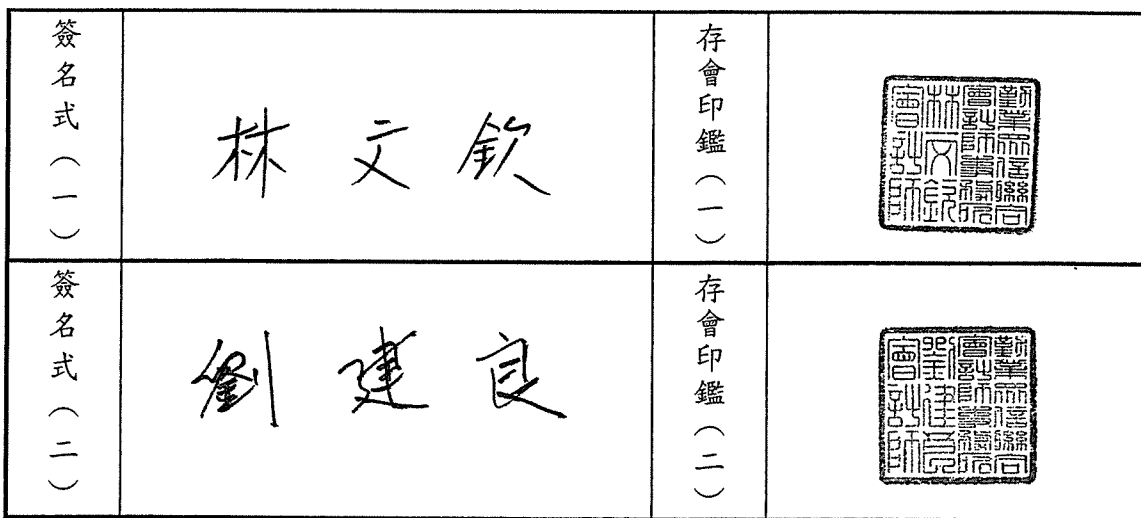 簽名式（一）
林文欽
存會印鑑（一）
勤業眾信聯合會計師事務所林文欽會計師
簽名式（二）
劉建良
存會印鑑（二）
勤業眾信聯合會計師事務所劉建良會計師